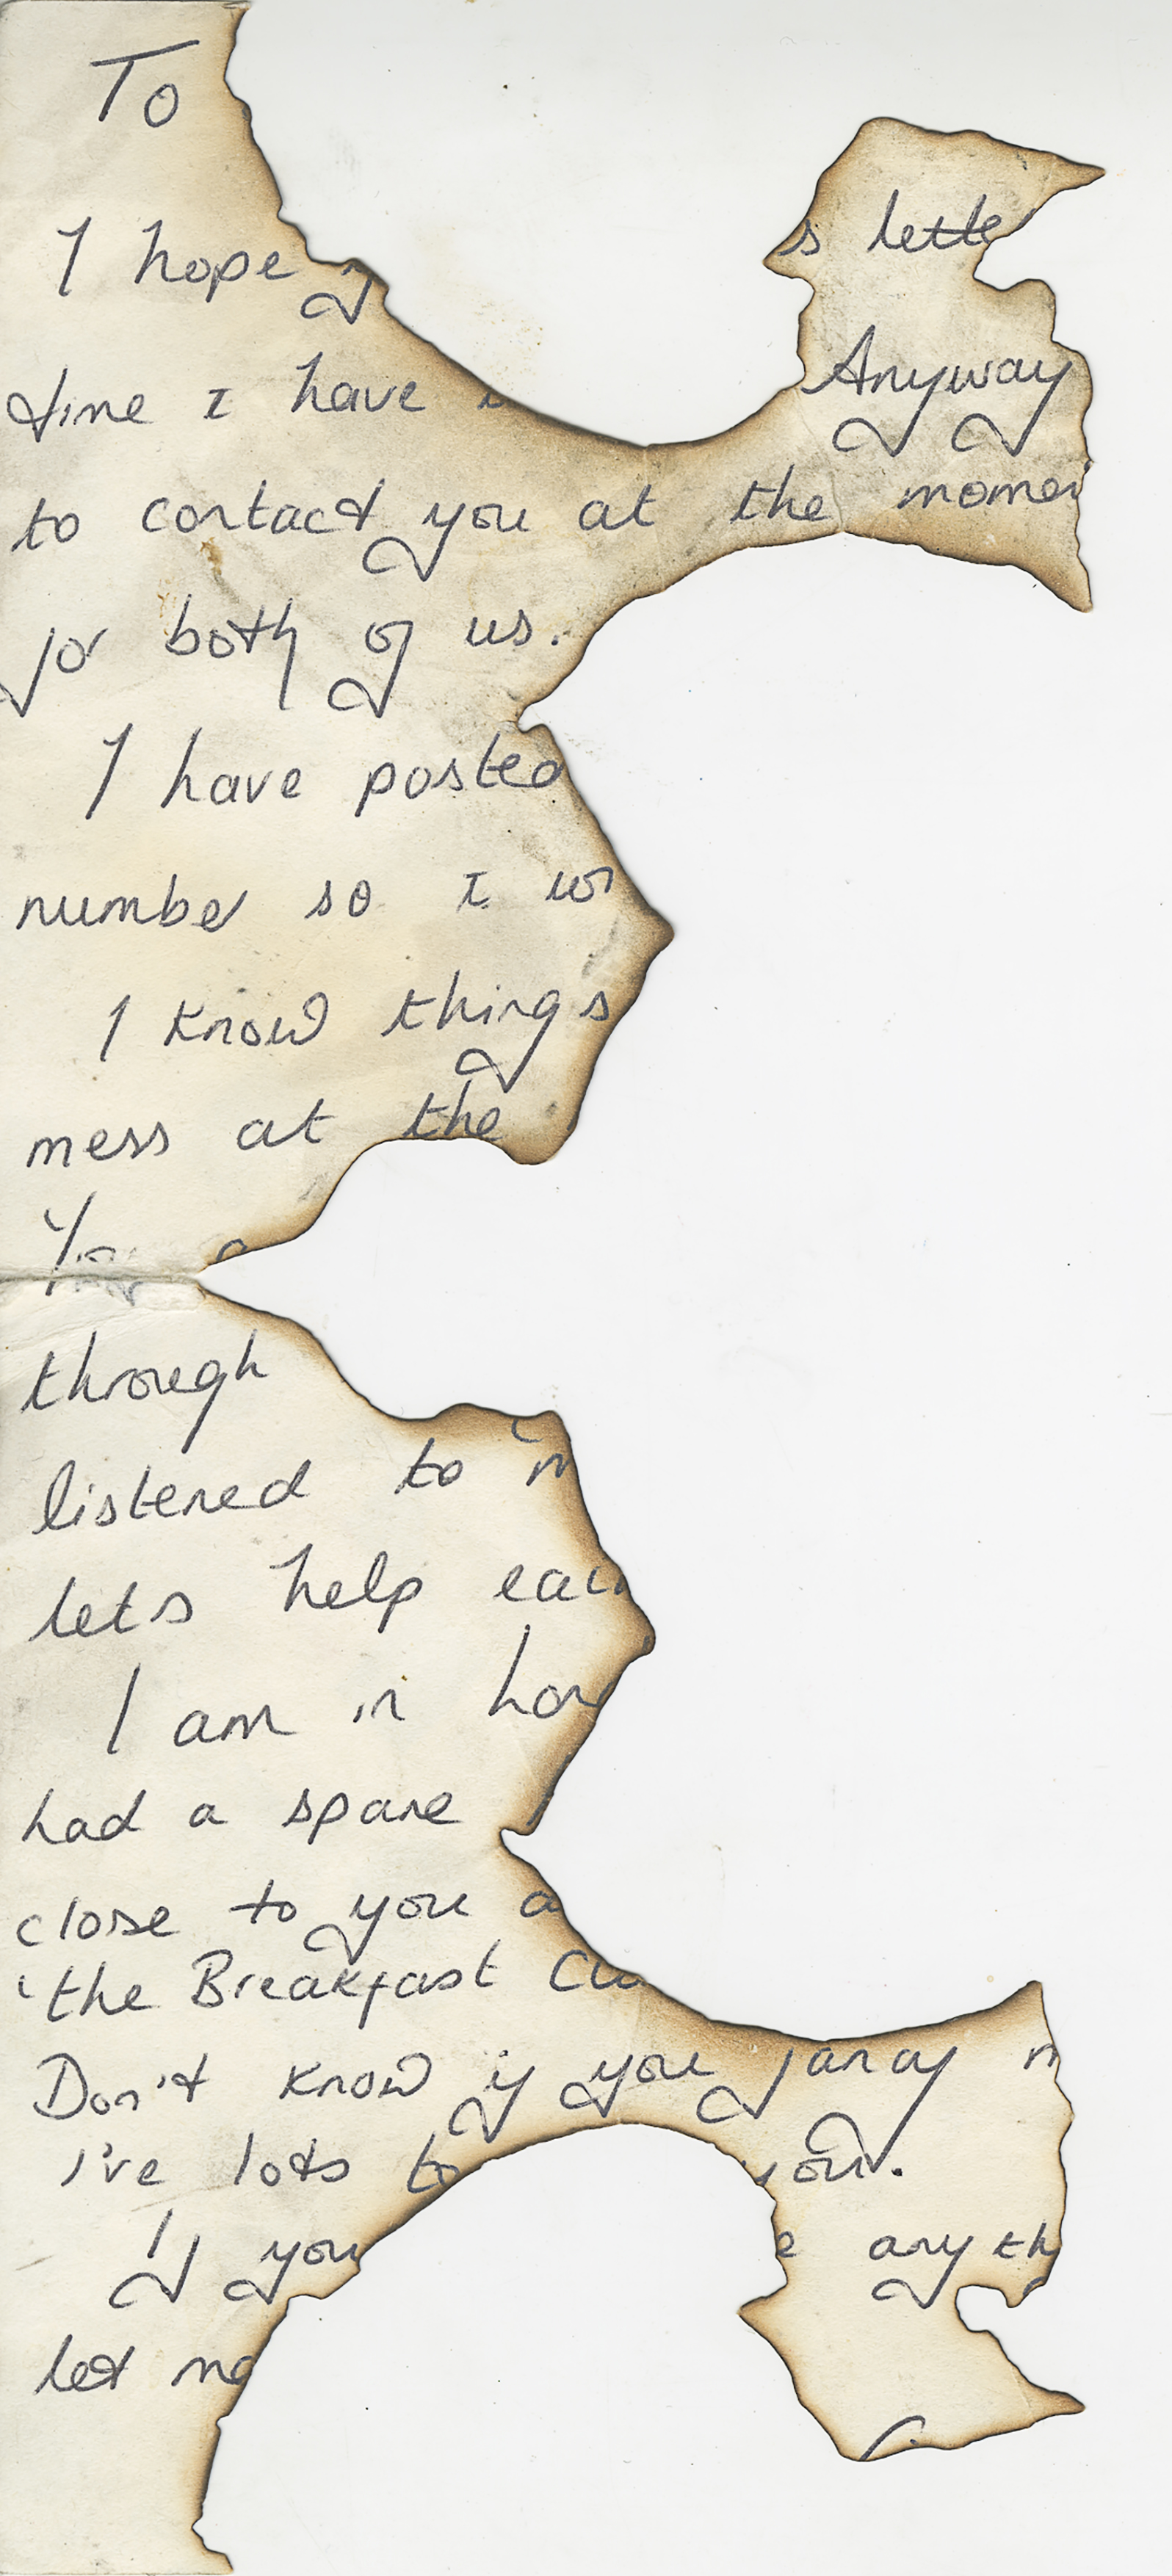 To
I hope s lette
time I have Anyway
to contact you at the momen
for both of us.
I have posted
number so I
I know things
mess at the
through
listened to
lets help eac
I am in
had a spare
close to you a
'the Breakfast Clu
Don't know if you fancy
I've lots to you.
If you e anyth
let me